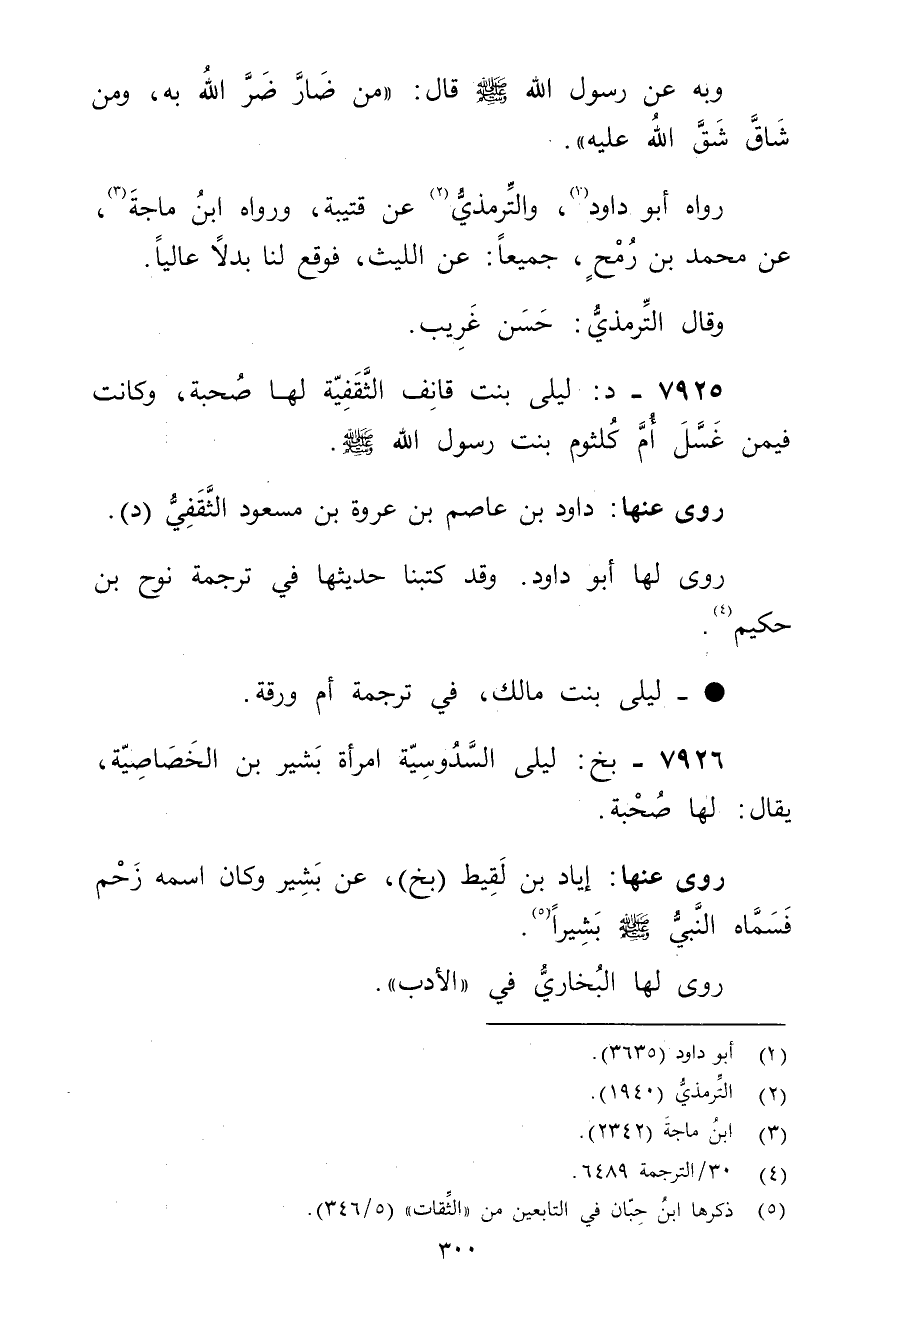 وبه عن رسول الله ﷺ قال: «من ضَارَّ ضَرَّ اللهُ به، ومن
شَاقَّ شَقَّ اللهُ عليه».
رواه أبو داود(١)، والتِّرمذيُّ(٢) عن قتيبة، ورواه ابنُ ماجةَ(٣)،
عن محمد بن رُمْحٍ، جميعاً: عن الليث، فوقع لنا بدلًا عالياً.
وقال التِّرمذيُّ: حَسَن غَرِيب.
٧٩٢٥ ـ د: ليلى بنت قانِف الثَّقَفِيّة لها صُحبة، وكانت
فيمن غَسَّلَ أُمَّ كُلثوم بنت رسول الله ﷺ.
روى عنها: داود بن عاصم بن عروة بن مسعود الثَّقَفِيُّ (د).
روى لها أبو داود. وقد كتبنا حديثها في ترجمة نوح بن
حكيم(٤).
● ـ ليلى بنت مالك، في ترجمة أم ورقة.
٧٩٢٦ ـ بخ: ليلى السَّدُوسِيّة امرأة بَشير بن الخَصَاصِيّة،
يقال: لها صُحْبة.
روى عنها: إياد بن لَقِيط (بخ)، عن بَشِير وكان اسمه زَحْم
فَسَمَّاه النَّبيُّ ﷺ بَشِيراً(٥).
روى لها البُخاريُّ في «الأدب».
(١) أبو داود (٣٦٣٥).
(٢) التِّرمذيُّ (١٩٤٠).
(٣) ابنُ ماجةَ (٢٣٤٢).
(٤) ٣٠/الترجمة ٦٤٨٩.
(٥) ذكرها ابنُ حِبّان في التابعين من «الثِّقات» (٣٤٦/٥).
٣٠٠